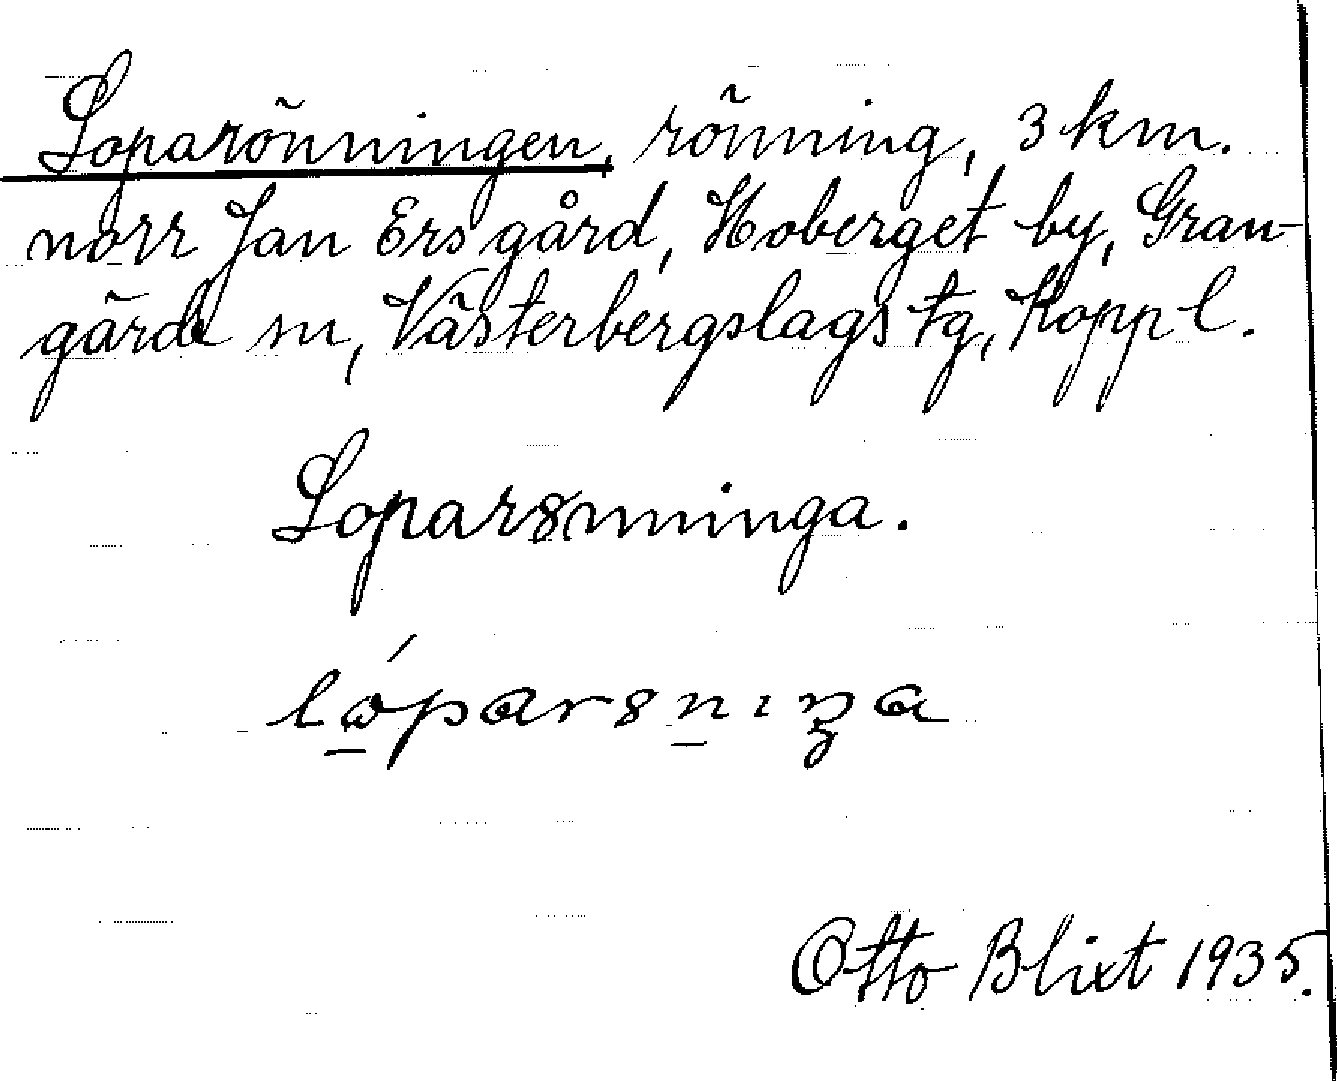 Loparönningen, rönning, 3 km.
norr Jan Ers gård, Hoberget by, Gran-
gärde sn, Västerbergslags tg, Koppl.
Lopar8nninga.
lópar8nıŋa
Otto Blixt 1935.